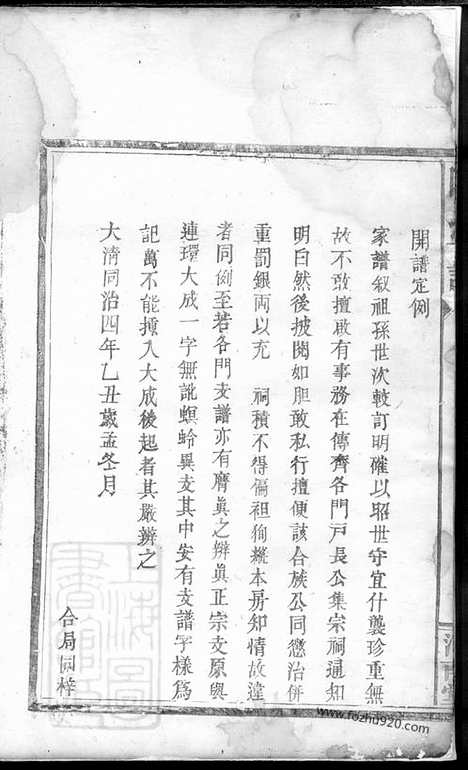 開譜定例
家譜叙祖孫世次較訂明確以昭世守宜什襲珍重無
故不敢擅啟有事務在傳齊各門戸長公集宗祠通知
明白然後披閱如胆敢私行擅便該合族公同懲治併
重罰銀両以充 祠積不得偏袒狥縱本房知情故違
者同例至若各門支譜亦有贋眞之辯眞正宗支原與
連環大成一字無訛螟蛉異支其中安有支譜字樣為
記萬不能攙入大成後起者其嚴辨之
大清同治四年乙丑歲孟冬月
合局同梓
上海圖
書館藏
www.fozhu920.com